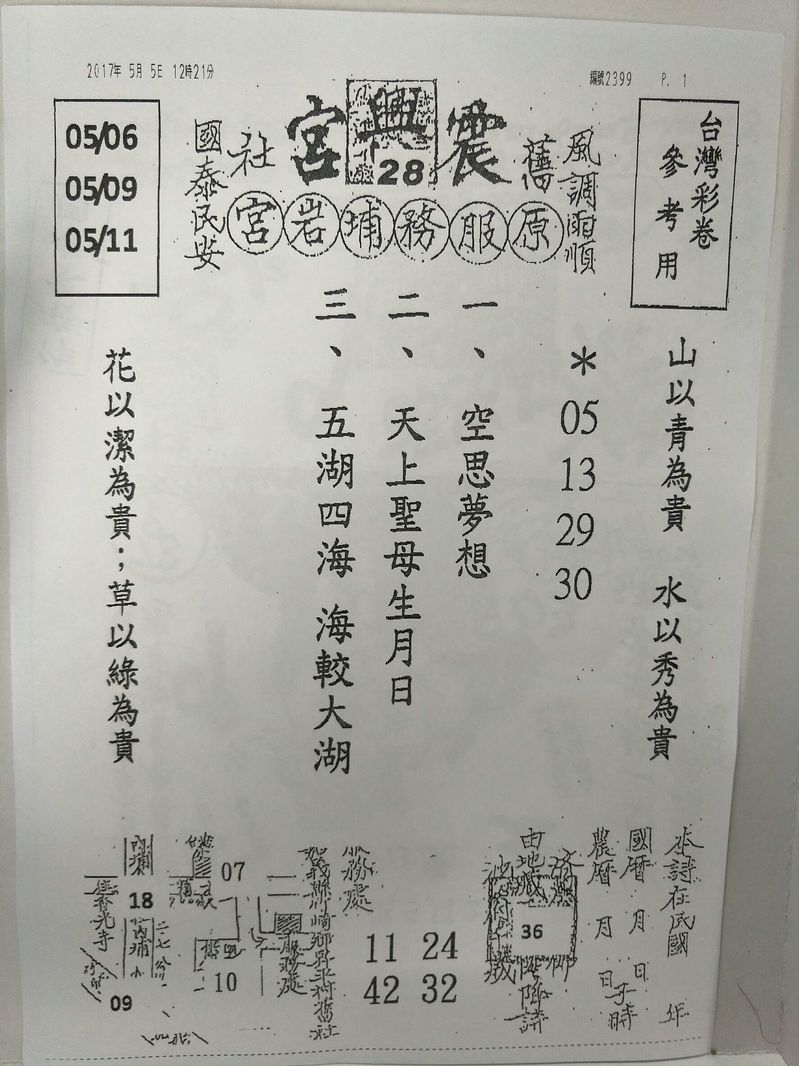 2017年 5月 5日 12時21分
編號2399 P. 1
台灣彩卷
參考用
風調雨順
舊
震興宮
28
社
國泰民安
原服務埔岩宮
05/06
05/09
05/11
山以青為貴 水以秀為貴
＊05 13 29 30
一、空思夢想
二、天上聖母生月日
三、五湖四海 海較大湖
花以潔為貴；草以綠為貴
本詩在民國 年
國曆 月 日
農曆 月 日
子時
36
服務處
11 24
42 32
07
10
服務處
18
09